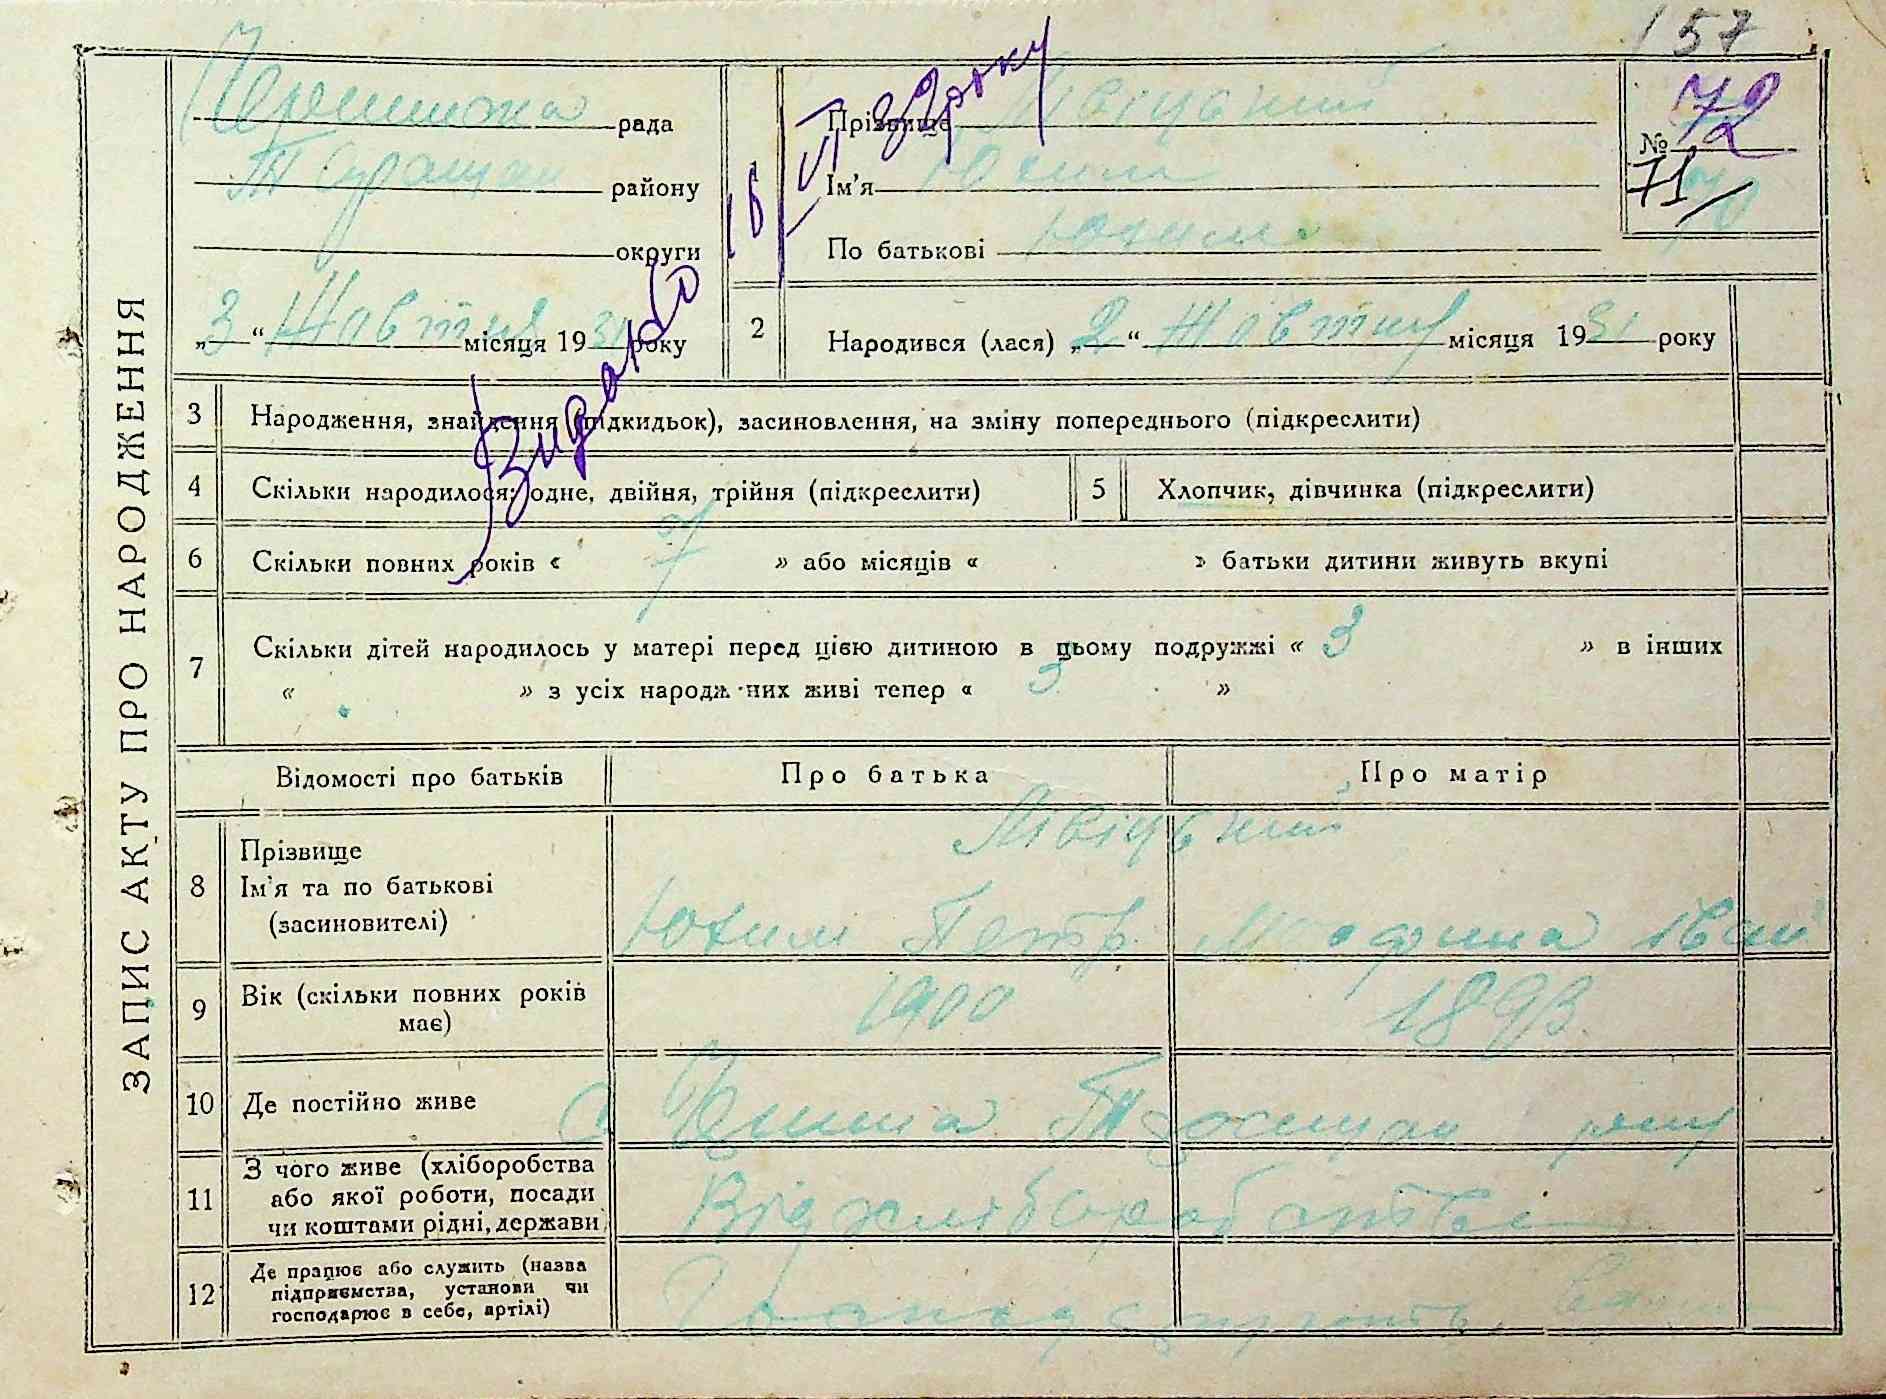 157
ЗАПИС АКТУ ПРО НАРОДЖЕННЯ
рада
району
округи
„3“ Жовтня місяця 1931 року
Видано
Прізвище
Ім'я Юхим
По батькові Юхим
№ 72
71
70
2 Народився (лася) „2“ Жовтня місяця 1931 року
3 Народження, знайдення (підкидьок), засиновлення, на зміну попереднього (підкреслити)
4 Скільки народилося: одне, двійня, трійня (підкреслити)
5 Хлопчик, дівчинка (підкреслити)
6 Скільки повних років « 7 » або місяців « » батьки дитини живуть вкупі
7 Скільки дітей народилось у матері перед цією дитиною в цьому подружжі « 3 » в інших
« » з усіх народж них живі тепер « 3 »
Відомості про батьків Про батька Про матір
8 Прізвище
Ім'я та по батькові
(засиновителі)
Юхим Петр Іван
9 Вік (скільки повних років
має)
1900 1893
10 Де постійно живе
11 З чого живе (хліборобства
або якої роботи, посади
чи коштами рідні, держави
Від хліборобства
12 Де працює або служить (назва
підприємства, установи чи
господарює в себе, артілі)